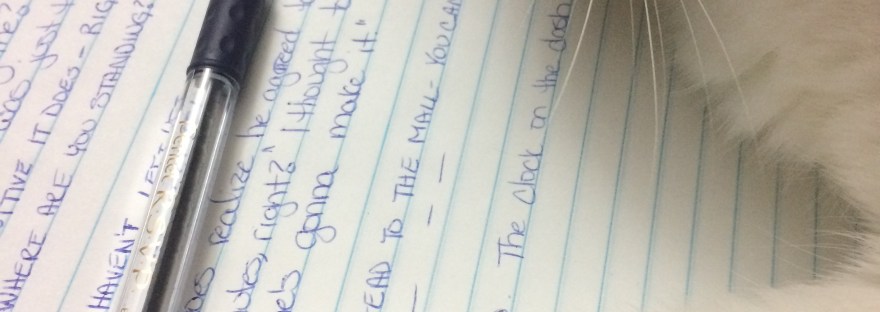 was just
ITIVE IT DOES - RIG
WHERE ARE YOU STANDING?
HAVEN'T LEFT
oes realize he agreed t
utes, right?" I thought t
e's gonna make it."
EAD TO THE MALL - YOU CAN
— — —
. The clock on the dash